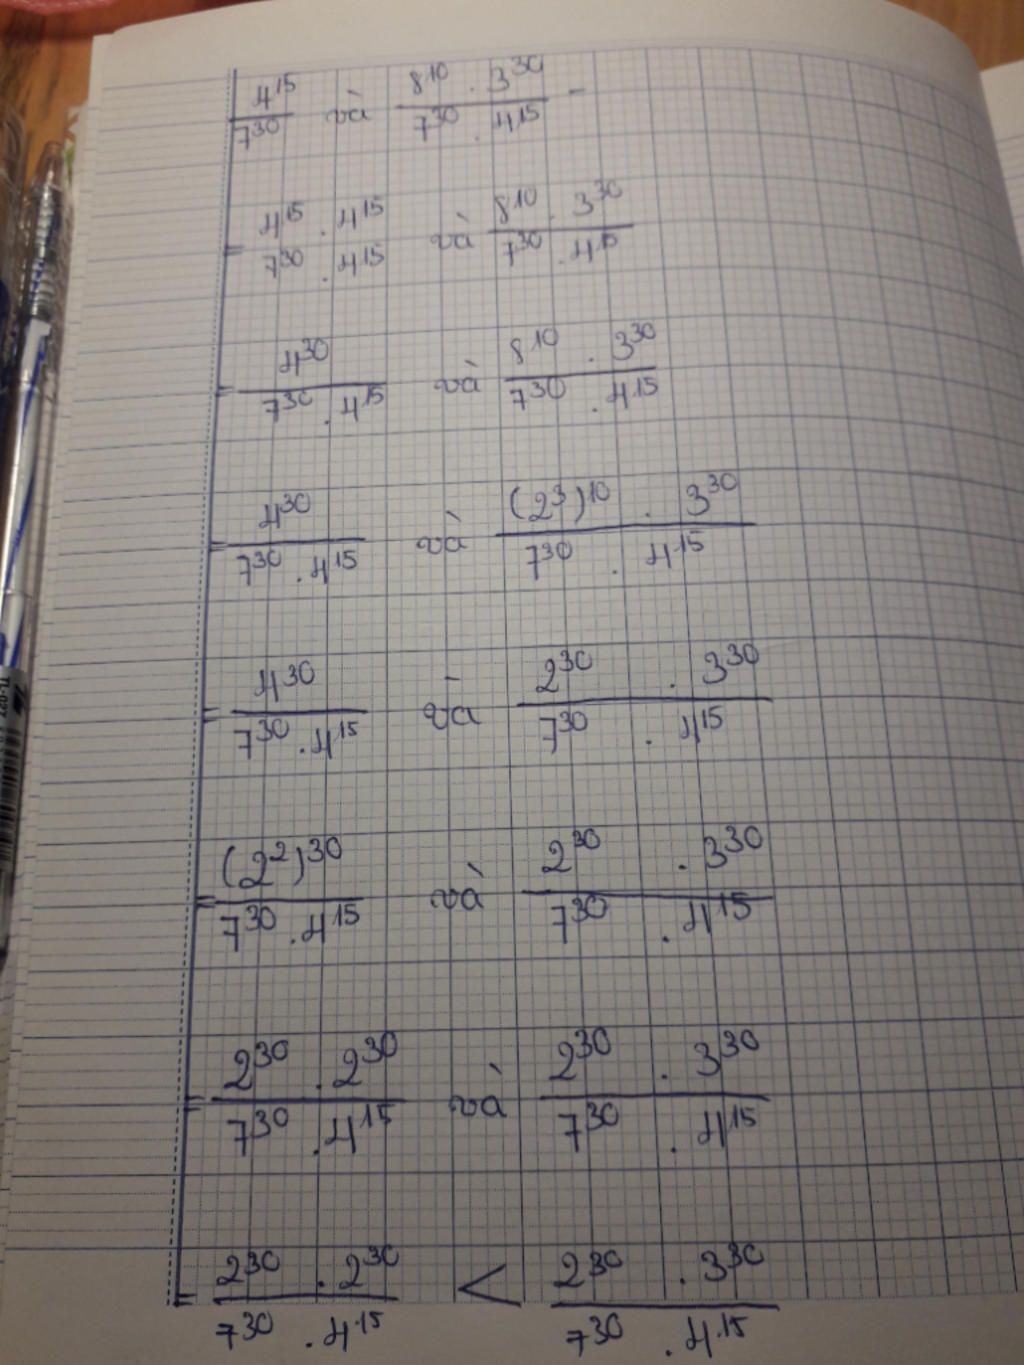 4¹⁵/7³⁰ và 8¹⁰ . 3³⁰/7³⁰ . 4¹⁵ -
= 4¹⁵ . 4¹⁵/7³⁰ . 4¹⁵ và 8¹⁰ . 3³⁰/7³⁰ . 4¹⁵
= 4³⁰/7³⁰ . 4¹⁵ và 8¹⁰ . 3³⁰/7³⁰ . 4¹⁵
= 4³⁰/7³⁰ . 4¹⁵ và (2³)¹⁰ . 3³⁰/7³⁰ . 4¹⁵
= 4³⁰/7³⁰ . 4¹⁵ và 2³⁰ . 3³⁰/7³⁰ . 4¹⁵
= (2²)³⁰/7³⁰ . 4¹⁵ và 2³⁰ . 3³⁰/7³⁰ . 4¹⁵
= 2³⁰ . 2³⁰/7³⁰ . 4¹⁵ và 2³⁰ . 3³⁰/7³⁰ . 4¹⁵
= 2³⁰ . 2³⁰/7³⁰ . 4¹⁵ < 2³⁰ . 3³⁰/7³⁰ . 4¹⁵